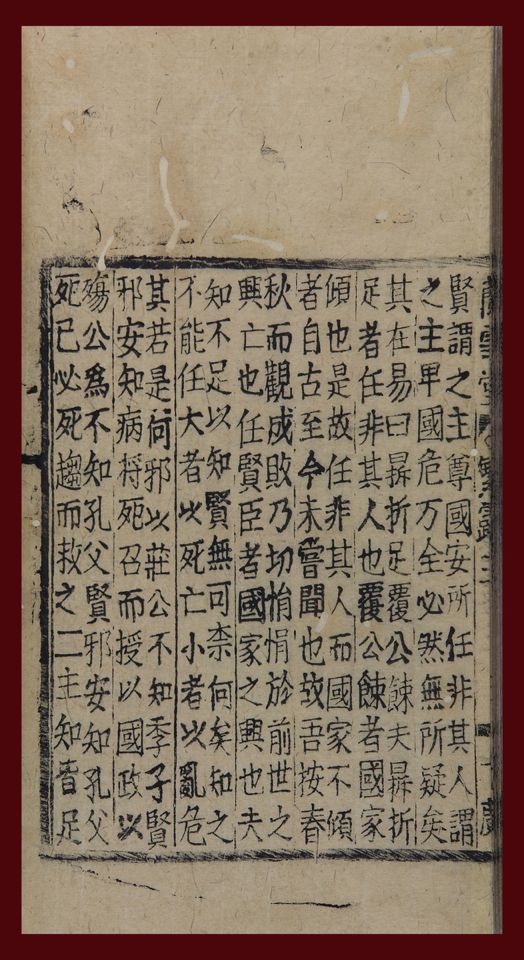 蘭雪堂
賢謂之主尊國安所任非其人謂
之主卑國危万全必然無所疑矣
其在易曰鼎折足覆公餗夫鼎折
足者任非其人也覆公餗者國家
傾也是故任非其人而國家不傾
者自古至今未嘗聞也故吾按春
秋而觀成敗乃切悁悁於前世之
興亡也任賢臣者國家之興也夫
知不足以知賢無可柰何矣知之
不能任大者以死亡小者以亂危
其若是何邪以莊公不知季子賢
邪安知病将死召而授以國政以
殤公爲不知孔父賢邪安知孔父
死已必死趨而救之二主知皆足